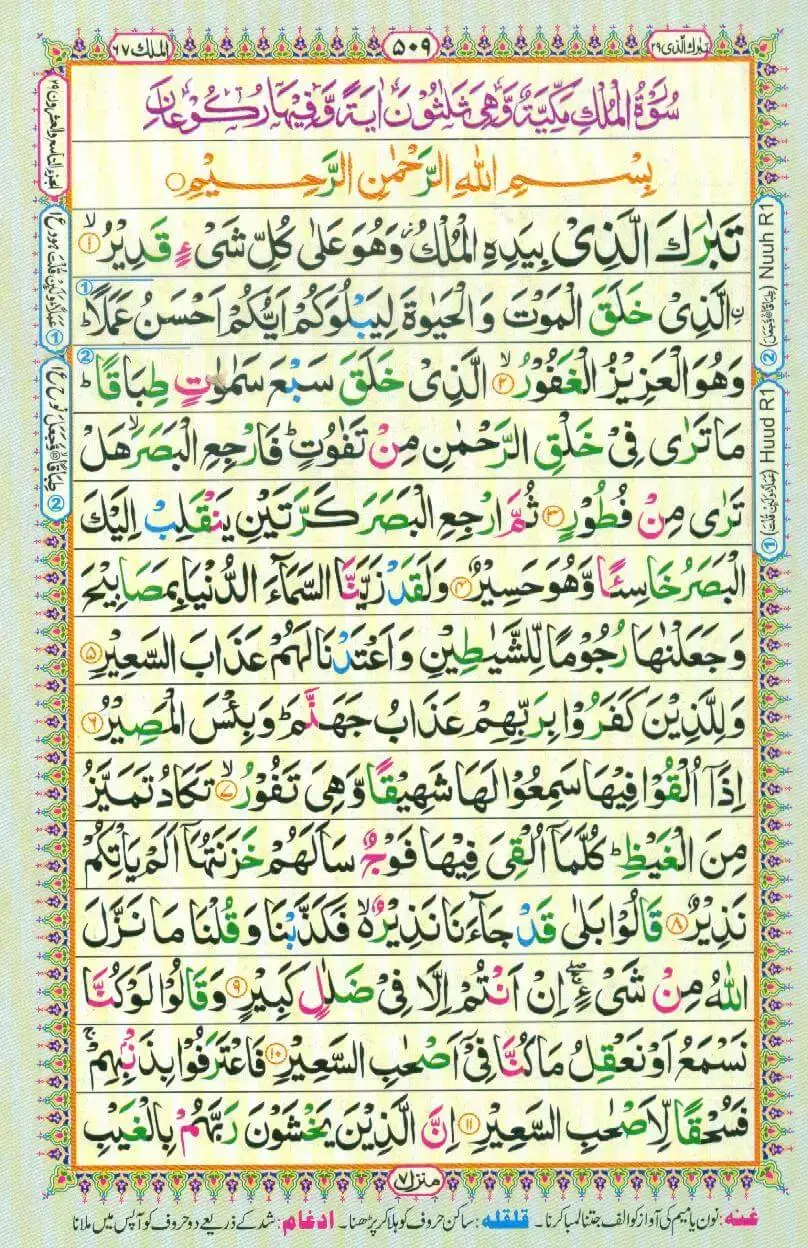 تبٰرك الذى ٢٩
۵۰۹
الملك ٦٧
سُوْرَةُ الْمُلْكِ مَكِّيَّةٌ وَّهِىَ ثَلٰثُوْنَ اٰيَةً وَّفِيْهَا رُكُوْعَانِ
بِسْمِ اللهِ الرَّحْمٰنِ الرَّحِيْمِ ○
تَبٰرَكَ الَّذِىْ بِيَدِهِ الْمُلْكُ وَهُوَ عَلٰى كُلِّ شَىْءٍ قَدِيْرُ ۙ ۱
ۨ الَّذِىْ خَلَقَ الْمَوْتَ وَالْحَيٰوةَ لِيَبْلُوَكُمْ اَيُّكُمْ اَحْسَنُ عَمَلًا ؕ ①
وَهُوَ الْعَزِيْزُ الْغَفُوْرُ ۙ ۲ الَّذِىْ خَلَقَ سَبْعَ سَمٰوٰتٍ طِبَاقًا ؕ ②
مَا تَرٰى فِىْ خَلْقِ الرَّحْمٰنِ مِنْ تَفٰوُتٍ ؕ فَارْجِعِ الْبَصَرَ ۙ هَلْ
تَرٰى مِنْ فُطُوْرٍ ۳ ثُمَّ ارْجِعِ الْبَصَرَ كَرَّتَيْنِ يَنْقَلِبْ اِلَيْكَ
الْبَصَرُ خَاسِئًا وَّهُوَ حَسِيْرٌ ۴ وَلَقَدْ زَيَّنَّا السَّمَآءَ الدُّنْيَا بِمَصَابِيْحَ
وَجَعَلْنٰهَا رُجُوْمًا لِّلشَّيٰطِيْنِ وَاَعْتَدْنَا لَهُمْ عَذَابَ السَّعِيْرِ ۵
وَلِلَّذِيْنَ كَفَرُوْا بِرَبِّهِمْ عَذَابُ جَهَنَّمَ ؕ وَبِئْسَ الْمَصِيْرُ ۶
اِذَآ اُلْقُوْا فِيْهَا سَمِعُوْا لَهَا شَهِيْقًا وَّهِىَ تَفُوْرُ ۙ ۷ تَكَادُ تَمَيَّزُ
مِنَ الْغَيْظِ ؕ كُلَّمَآ اُلْقِىَ فِيْهَا فَوْجٌ سَاَلَهُمْ خَزَنَتُهَآ اَلَمْ يَاْتِكُمْ
نَذِيْرٌ ۸ قَالُوْا بَلٰى قَدْ جَآءَنَا نَذِيْرٌ ۙ۬ فَكَذَّبْنَا وَقُلْنَا مَا نَزَّلَ
اللهُ مِنْ شَىْءٍ ۖۚ اِنْ اَنْتُمْ اِلَّا فِىْ ضَلٰلٍ كَبِيْرٍ ۹ وَقَالُوْا لَوْ كُنَّا
نَسْمَعُ اَوْ نَعْقِلُ مَا كُنَّا فِىْٓ اَصْحٰبِ السَّعِيْرِ ۱۰ فَاعْتَرَفُوْا بِذَنْۢبِهِمْ ۚ
فَسُحْقًا لِّاَصْحٰبِ السَّعِيْرِ ۱۱ اِنَّ الَّذِيْنَ يَخْشَوْنَ رَبَّهُمْ بِالْغَيْبِ
② Nuuh R1
① Huud R1
②
①
منزل ۷
غنه: نون یا میم کی آواز کو الف جتنا لمبا کرنا۔ قلقله: ساکن حروف کو ہلا کر پڑھنا۔ ادغام: شد کے ذریعے دو حروف کو آپس میں ملانا